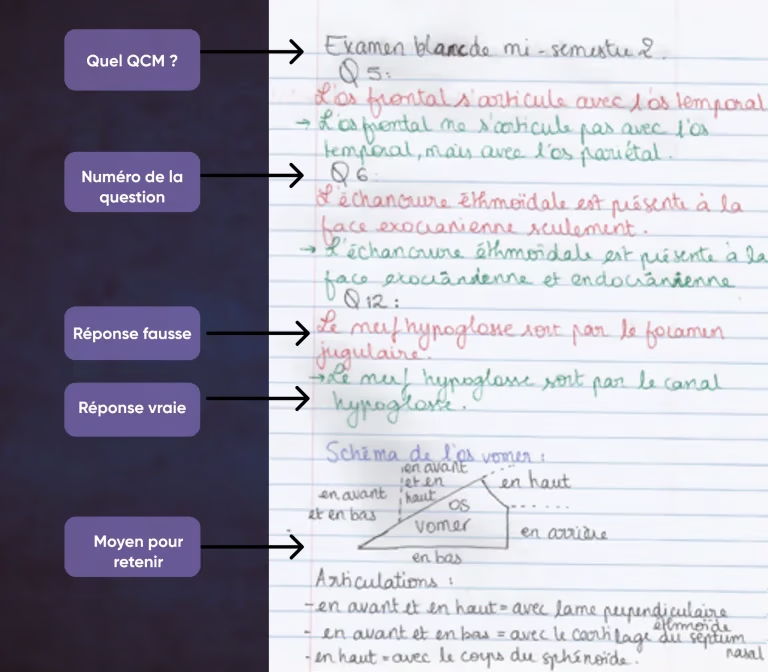 Quel QCM ?
Examen blanc de mi-semestre 2.
Q 5 :
L'os frontal s'articule avec l'os temporal
Numéro de la
question
→ L'os frontal ne s'articule pas avec l'os
temporal, mais avec l'os pariétal.
Q 6 :
L'échancrure éthmoïdale est présente à la
face exocranienne seulement.
→ L'échancrure éthmoïdale est présente à la
face exocrânienne et endocrânienne
Q 12 :
Réponse fausse
Le nerf hypoglosse sort par le foramen
jugulaire.
Réponse vraie
→ Le nerf hypoglosse sort par le canal
hypoglosse.
Schéma de l'os vomer :
en avant
et en
haut
en haut
en avant
et en bas
os
vomer
en arrière
en bas
Moyen pour
retenir
Articulations :
- en avant et en haut = avec lame perpendiculaire
éthmoïde
- en avant et en bas = avec le cartilage du septum
nasal
- en haut = avec le corps du sphénoïde.